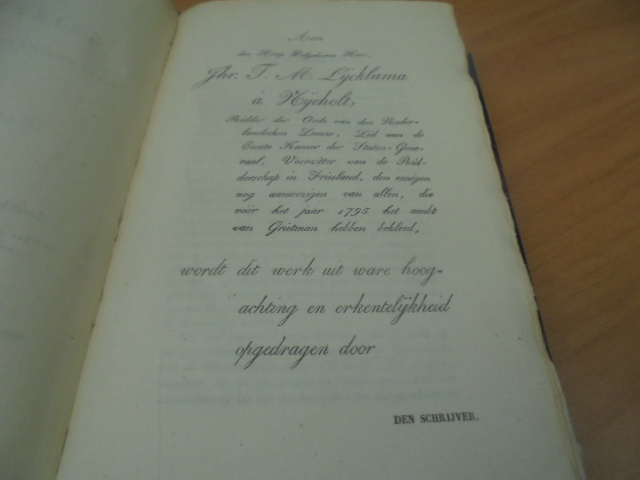 Aan
den Hoog Welgeboren Heer,
Jhr. T. M. Lÿcklama
à Nÿeholt,
Ridder der Orde van den Neder-
landschen Leeuw, Lid van de
Eerste Kamer der Staten-Gene-
raal, Voorzitter van de Rid-
derschap in Friesland, den eenigen
nog aanwezigen van allen, die
vóór het jaar 1795 het ambt
van Grietman hebben bekleed,
wordt dit werk uit ware hoog-
achting en erkentelÿkheid
opgedragen door
DEN SCHRIJVER.